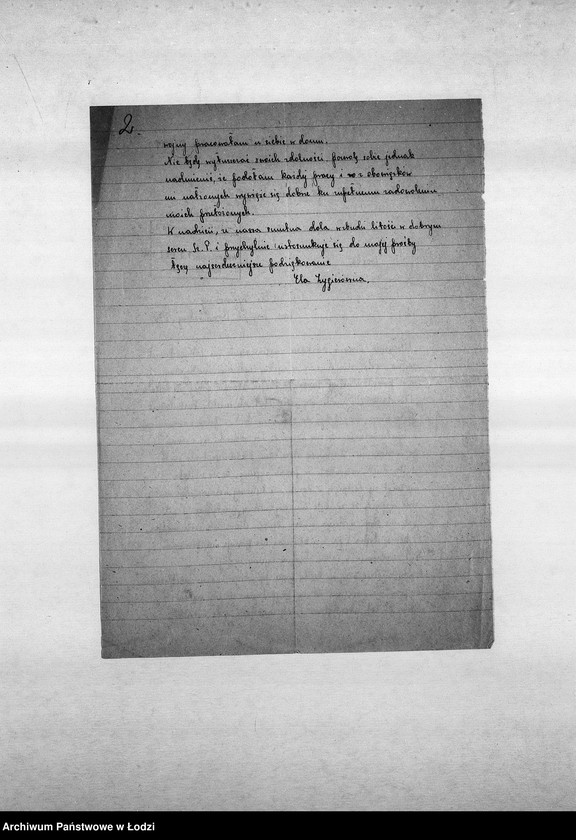 2.
wojny pracowałam u siebie w domu.
Nie będę wyłuszczać swoich zdolności pozwolę sobie jednak
nadmienić, że podołam każdej pracy i z obowiązków
mi nałożonych wywiążę się dobrze ku zupełnemu zadowoleniu
moich przełożonych.
W nadziei, że nasza smutna dola wzbudzi litość w dobrym
sercu Sz. P. i przychylnie ustosunkuje się do mojej prośby
łączę najserdeczniejsze podziękowanie
Ela Zygierówna.
Archiwum Państwowe w Łodzi